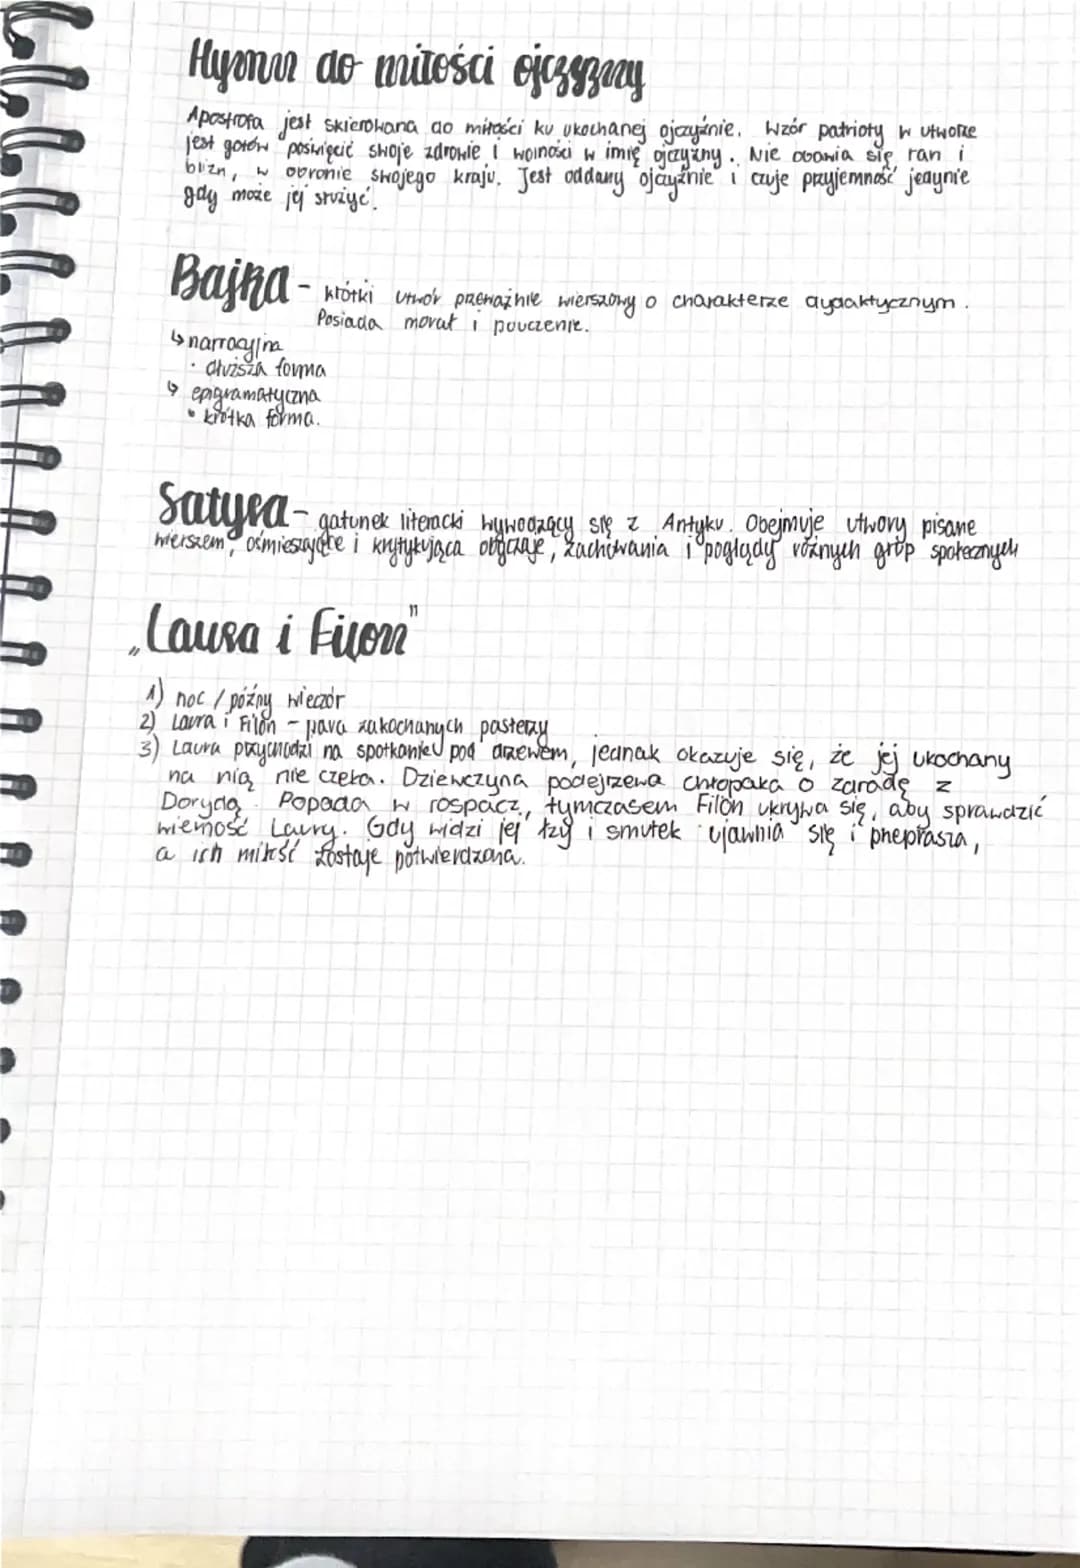 Hymn do miłości ojczyzny
Apostrofa jest skierowana do miłości ku ukochanej ojczyźnie. Wzór patrioty w utworze
jest gotów poświęcić swoje zdrowie i wolności w imię ojczyzny. Nie obawia się ran i
blizn, w obronie swojego kraju. Jest oddany ojczyźnie i czuje przyjemność jedynie
gdy może jej służyć.
Bajka - krótki utwór przeważnie wierszowy o charakterze dydaktycznym.
Posiada morał i pouczenie.
↳ narracyjna
· dłuższa forma
↳ epigramatyczna
• krótka forma.
Satyra - gatunek literacki wywodzący się z Antyku. Obejmuje utwory pisane
wierszem, ośmieszające i krytykująca obyczaje, zachowania i poglądy różnych grup społecznych
„Laura i Filon"
1) noc / późny wieczór
2) Laura i Filon - para zakochanych pasterzy
3) Laura przychodzi na spotkanie pod drzewem, jednak okazuje się, że jej ukochany
na nią nie czeka. Dziewczyna podejrzewa chłopaka o zdradę z
Dorydą. Popada w rospacz, tymczasem Filon ukrywa się, aby sprawdzić
wierność Laury. Gdy widzi jej łzy i smutek ujawnia się i przeprasza,
a ich miłość zostaje potwierdzona.